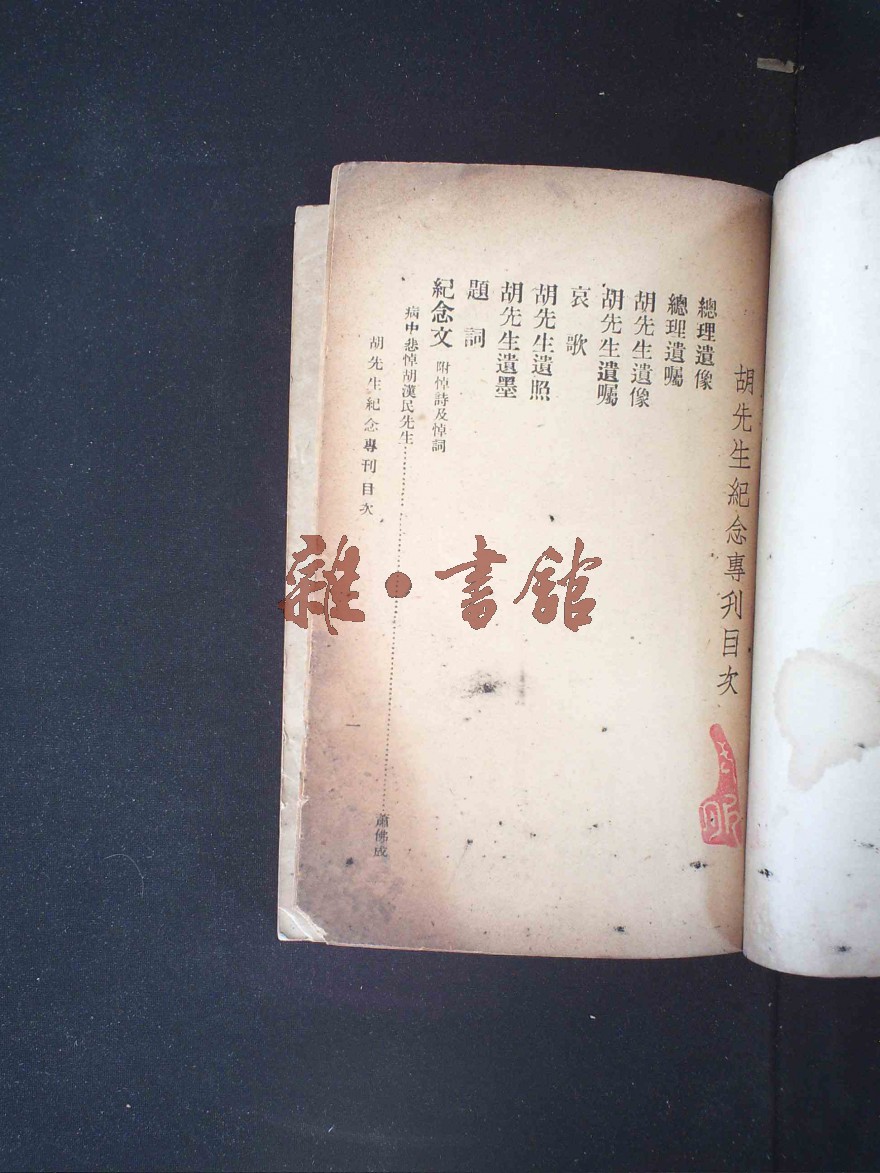 胡先生紀念專刊目次
總理遺像
總理遺囑
胡先生遺像
胡先生遺囑
哀歌
胡先生遺照
胡先生遺墨
題詞
紀念文 附悼詩及悼詞
病中悲悼胡漢民先生……蕭佛成
胡先生紀念專刊目次 一
雜·書館